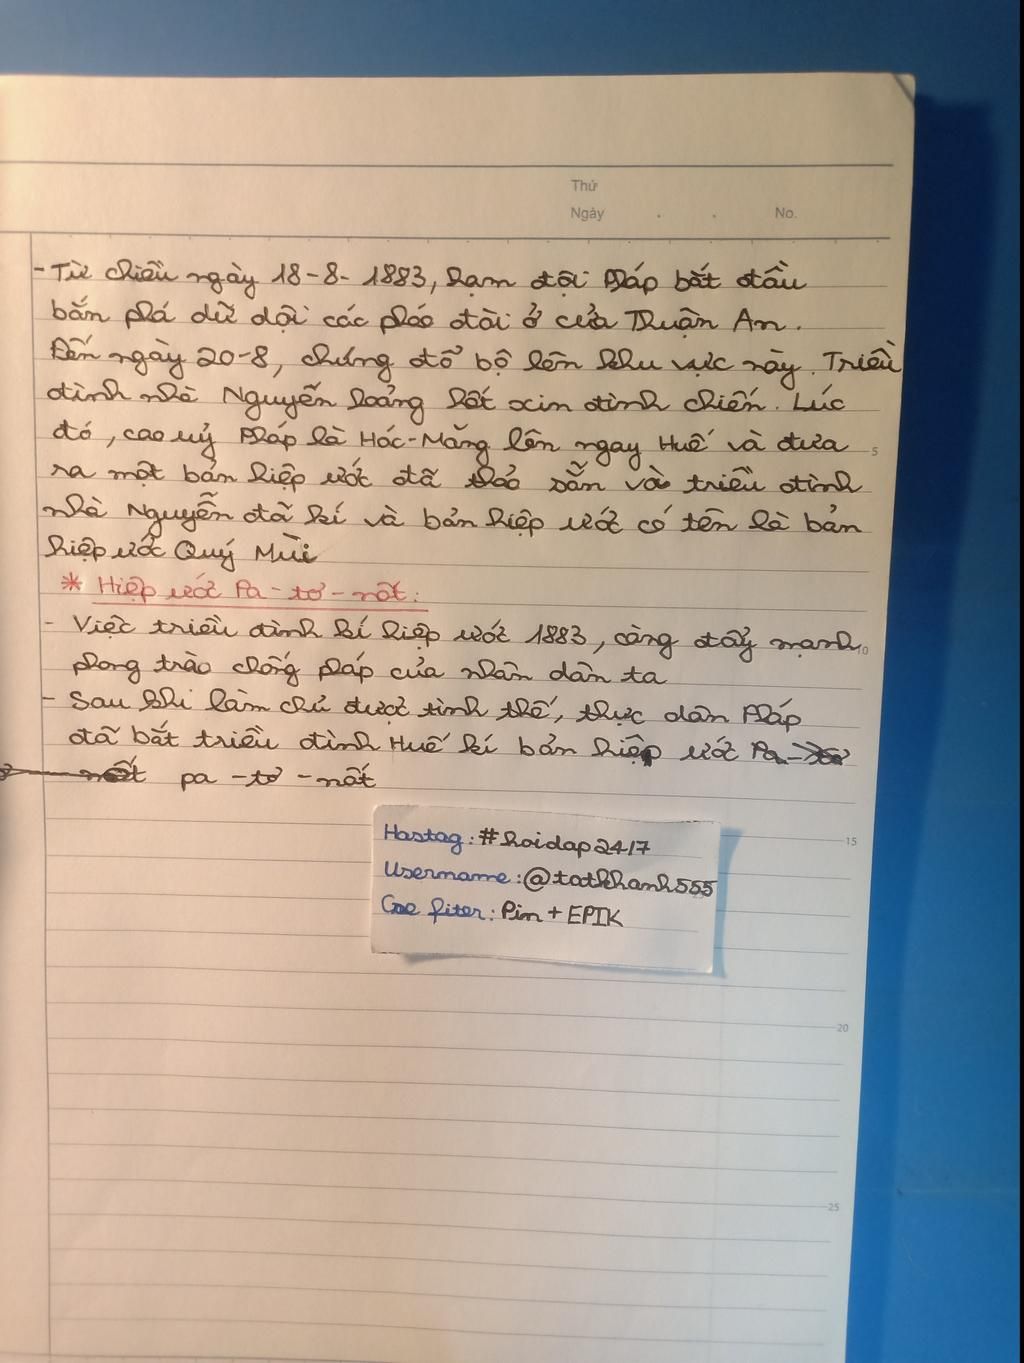 Thứ
Ngày . . No.
- Từ chiều ngày 18-8-1883, hạm đội Pháp bắt đầu
bắn phá dữ dội các pháo đài ở cửa Thuận An.
Đến ngày 20-8, chúng đổ bộ lên khu vực này. Triều
đình nhà Nguyễn hoảng hốt xin đình chiến. Lúc
đó, cao uỷ Pháp là Hác-Măng lên ngay Huế và đưa
5
ra một bản hiệp ước đã thảo sẵn và triều đình
nhà Nguyễn đã kí và bản hiệp ước có tên là bản
hiệp ước Quý Mùi
* Hiệp ước Pa-tơ-nốt:
- Việc triều đình kí hiệp ước 1883, càng đẩy mạnh
10
phong trào chống pháp của nhân dân ta
- Sau khi làm chủ được tình thế, thực dân Pháp
đã bắt triều đình Huế kí bản hiệp ước Pa-
pa-tơ-nốt
Hastag: #hoidap247
15
Username: @tatkhanh555
fiter: Pin + EPIK
20
25